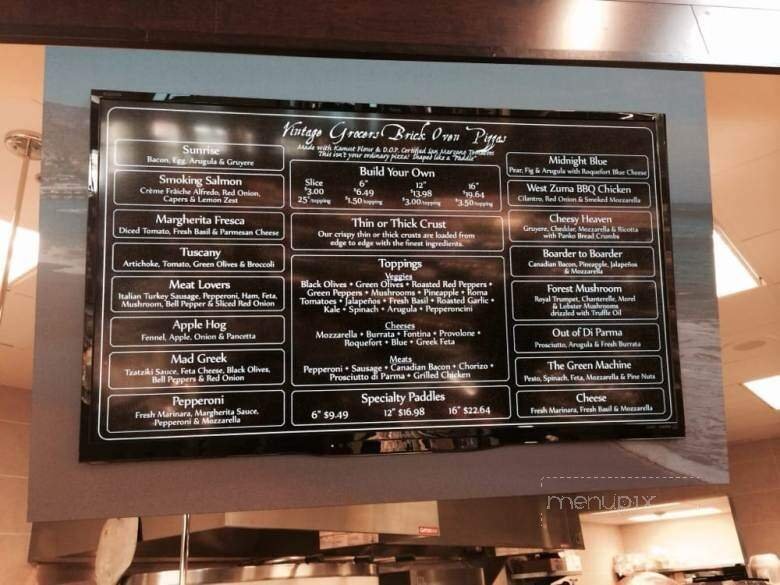 Vintage Grocers Brick Oven Pizzas
Made with Kamut Flour & D.O.P. Certified San Marzano Tomatoes
This isn't your ordinary pizza! Shaped like a "Paddle"
Sunrise
Bacon, Egg, Arugula & Gruyere
Smoking Salmon
Crème Frâiche Alfredo, Red Onion,
Capers & Lemon Zest
Margherita Fresca
Diced Tomato, Fresh Basil & Parmesan Cheese
Tuscany
Artichoke, Tomato, Green Olives & Broccoli
Meat Lovers
Italian Turkey Sausage, Pepperoni, Ham, Feta,
Mushroom, Bell Pepper & Sliced Red Onion
Apple Hog
Fennel, Apple, Onion & Pancetta
Mad Greek
Tzatziki Sauce, Feta Cheese, Black Olives,
Bell Peppers & Red Onion
Pepperoni
Fresh Marinara, Margherita Sauce,
Pepperoni & Mozzarella
Build Your Own
Slice 6" 12" 16"
$3.00 $6.49 $13.98 $19.64
25¢/topping $1.50/topping $3.00/topping $3.50/topping
Thin or Thick Crust
Our crispy thin or thick crusts are loaded from
edge to edge with the finest ingredients.
Toppings
Veggies
Black Olives • Green Olives • Roasted Red Peppers •
Green Peppers • Mushrooms • Pineapple • Roma
Tomatoes • Jalapeños • Fresh Basil • Roasted Garlic •
Kale • Spinach • Arugula • Pepperoncini
Cheeses
Mozzarella • Burrata • Fontina • Provolone •
Roquefort • Blue • Greek Feta
Meats
Pepperoni • Sausage • Canadian Bacon • Chorizo •
Prosciutto di Parma • Grilled Chicken
Specialty Paddles
6" $9.49 12" $16.98 16" $22.64
Midnight Blue
Pear, Fig & Arugula with Roquefort Blue Cheese
West Zuma BBQ Chicken
Cilantro, Red Onion & Smoked Mozzarella
Cheesy Heaven
Gruyere, Cheddar, Mozzarella & Ricotta
with Panko Bread Crumbs
Boarder to Boarder
Canadian Bacon, Pineapple, Jalapeños
& Mozzarella
Forest Mushroom
Royal Trumpet, Chanterelle, Morel
& Lobster Mushrooms
drizzled with Truffle Oil
Out of Di Parma
Prosciutto, Arugula & Fresh Burrata
The Green Machine
Pesto, Spinach, Feta, Mozzarella & Pine Nuts
Cheese
Fresh Marinara, Fresh Basil & Mozzarella
menupix